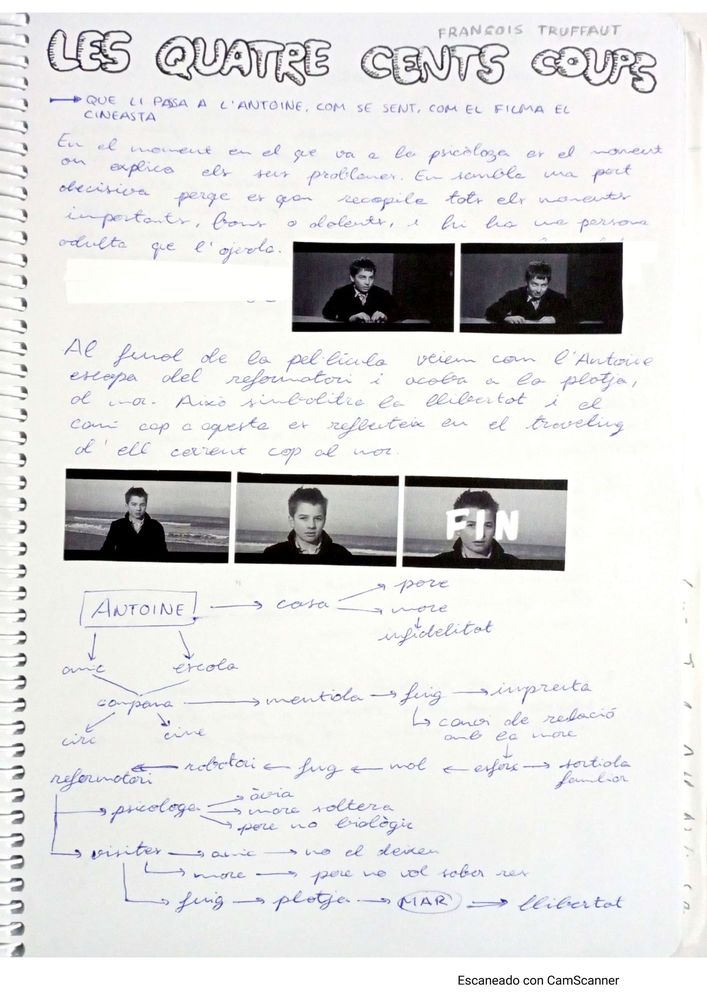 FRANÇOIS TRUFFAUT
LES QUATRE CENTS COUPS
→ QUE LI PASSA A L'ANTOINE, COM SE SENT, COM EL FILMA EL
CINEASTA
En el moment en el que va a la psicòloga es el moment
on explica els seus problemes. Em sembla una part
decisiva perque es quan recopila tots els moments
importants, bons o dolents, i hi ha una persona
adulta que l'ajuda.
Al final de la pel·lícula veiem com l'Antoine
escapa del reformatori i acaba a la platja,
al mar. Això simbolitza la llibertat i el
camí cap a aquesta es reflecteix en el traveling
d'ell corrent cap al mar.
FIN
ANTOINE → casa → pare
→ mare
infidelitat
amic escola
campana → mentida → fuig → impremta
circ cine
↳ canvi de relació
amb la mare
reformatori ← robatori ← fuig ← mal ← esforç → sortida
familiar
→ psicòloga → àvia
→ mare soltera
→ pare no biològic
→ visites → amic → no el deixen
→ mare → pare no vol saber res
→ fuig → platja → MAR → llibertat
Escaneado con CamScanner